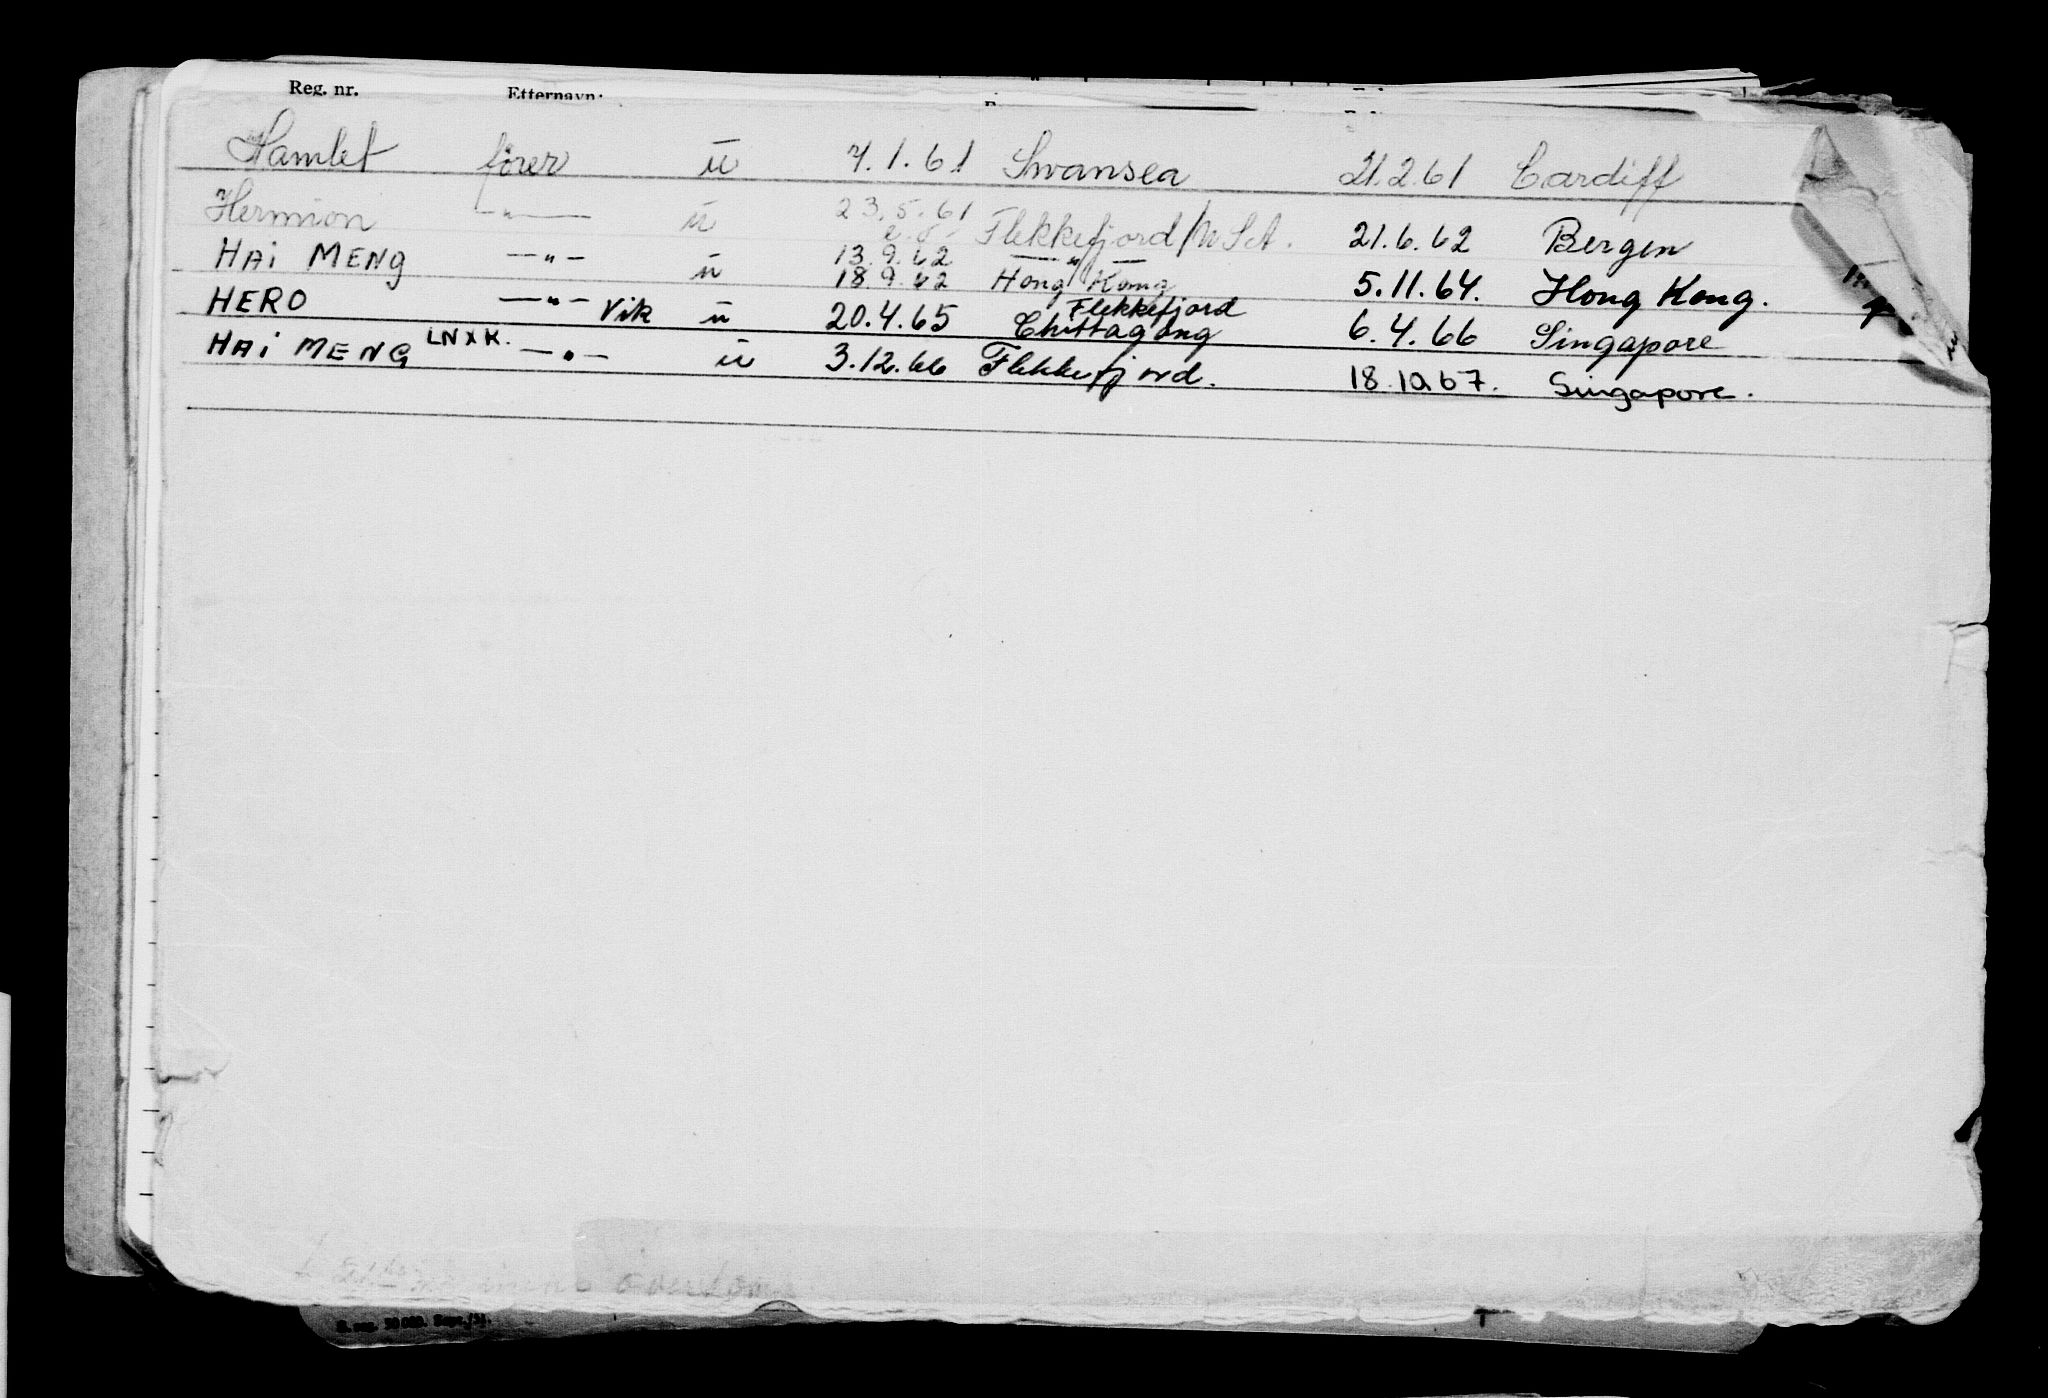 Reg. nr. Etternavn:
Hamlet fører u 7.1.61 Swansea 21.2.61 Cardiff
Hermion —"— u 23.5.61 Flekkefjord/ 21.6.62 Bergen
HAi MENG —"— u 13.9.62 —"—
18.9.62 Hong Kong 5.11.64. Hong Kong.
HERO —"— Vik u 20.4.65 Flekkefjord
Chittagong 6.4.66 Singapore
HAi MENG LNXK. —"— u 3.12.66 Flekkefjord. 18.10.67. Singapore.